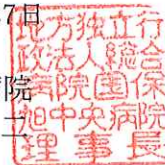 7日
院
地方独立行
政法人総合
病院国保
旭中央病院
理事長